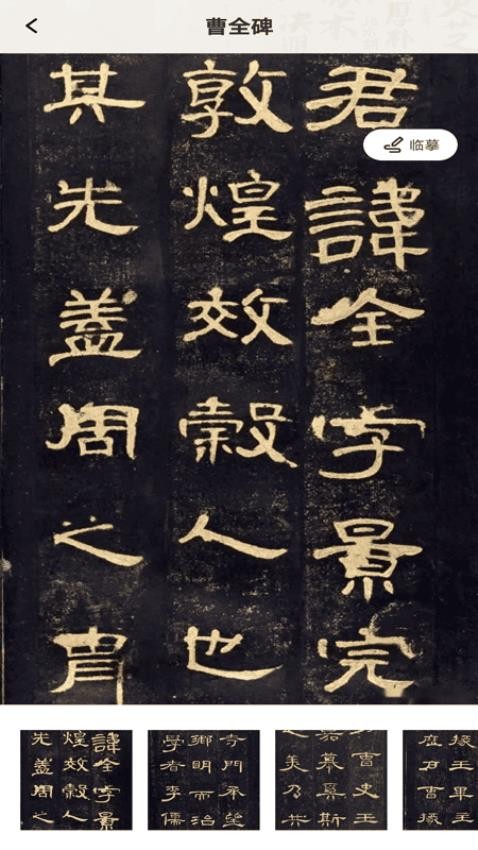 曹全碑
临摹
君諱全字景完
敦煌效穀人也
其先蓋周之胄
諱全字景
煌效穀人
先蓋周之
奇門承望
鄉明而治
學者李儒
曹史王
嘉慕奚斯
美乃共
掾王畢王